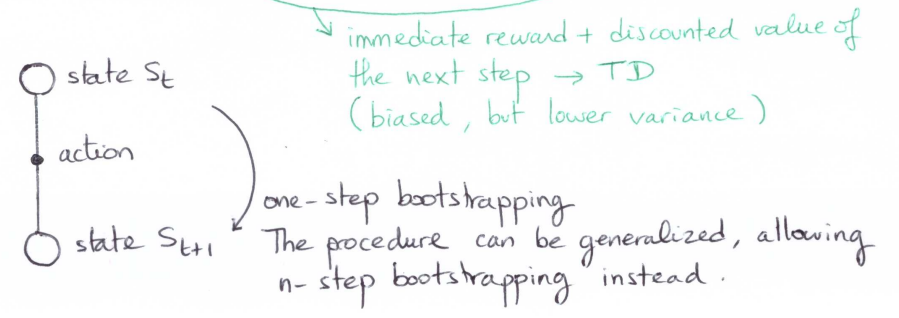 immediate reward + discounted value of
the next step → TD
(biased, but lower variance)
state St
action
state St+1
one-step bootstrapping
The procedure can be generalized, allowing
n-step bootstrapping instead.